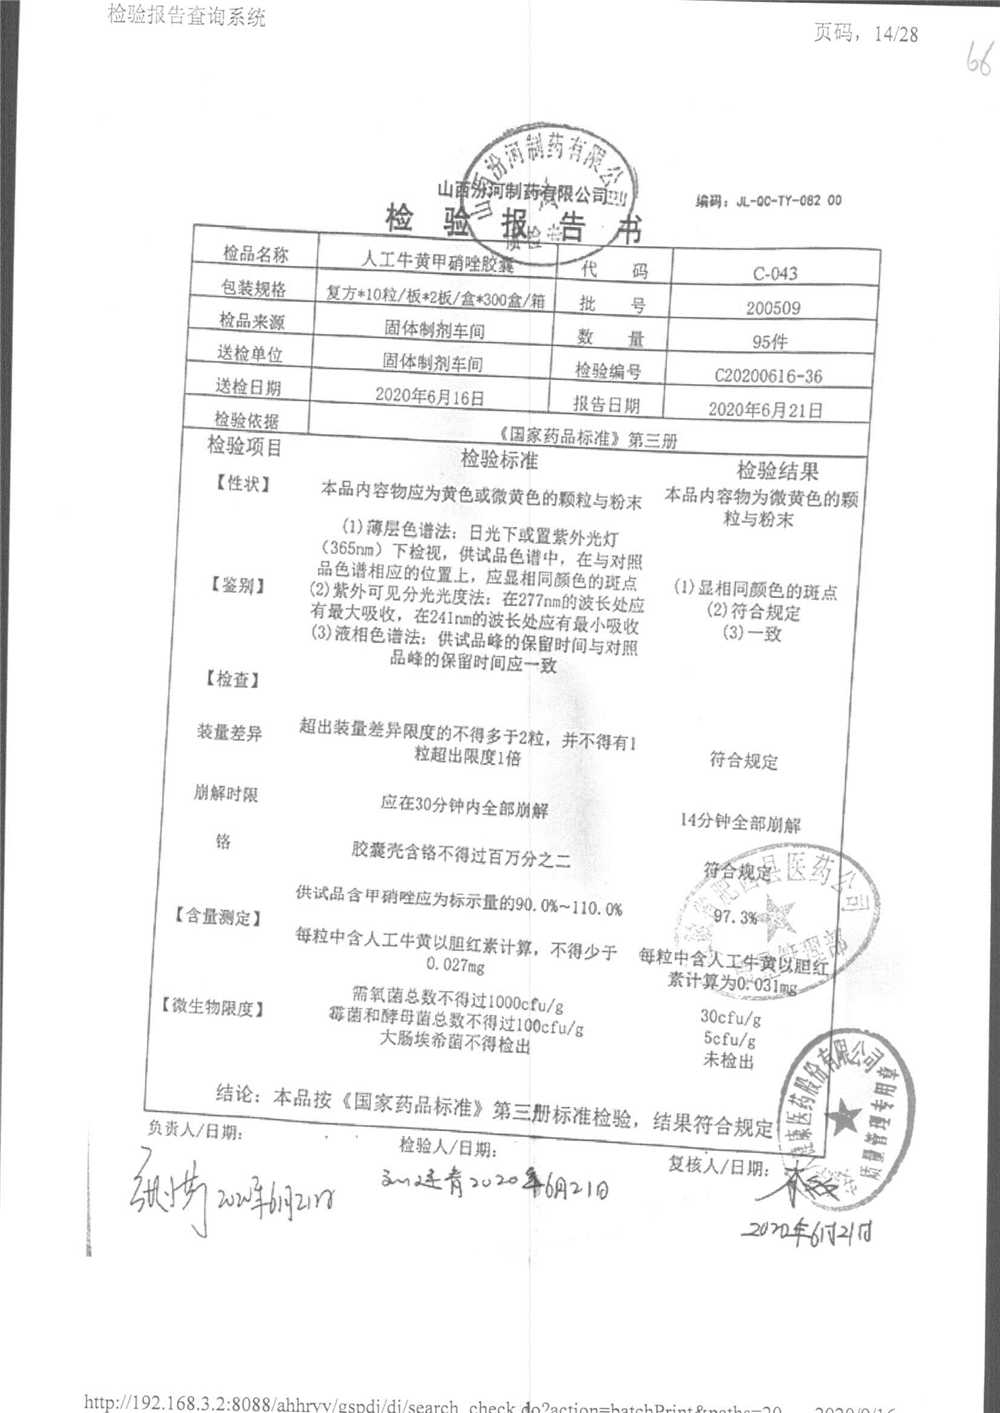 检验报告查询系统
页码，14/28
66
山西汾河制药有限公司
山西汾河制药有限公司
编码：JL-QC-TY-082 00
检 验 报 告 书
检品名称 人工牛黄甲硝唑胶囊 代 码 C-043
包装规格 复方*10粒/板*2板/盒*300盒/箱 批 号 200509
检品来源 固体制剂车间 数 量 95件
送检单位 固体制剂车间 检验编号 C20200616-36
送检日期 2020年6月16日 报告日期 2020年6月21日
检验依据 《国家药品标准》第三册
检验项目 检验标准 检验结果
【性状】 本品内容物应为黄色或微黄色的颗粒与粉末 本品内容物为微黄色的颗
粒与粉末
(1)薄层色谱法：日光下或置紫外光灯
（365nm）下检视，供试品色谱中，在与对照
品色谱相应的位置上，应显相同颜色的斑点 (1)显相同颜色的斑点
【鉴别】 (2)紫外可见分光光度法：在277nm的波长处应 (2)符合规定
有最大吸收，在241nm的波长处应有最小吸收 (3)一致
(3)液相色谱法：供试品峰的保留时间与对照
品峰的保留时间应一致
【检查】
装量差异 超出装量差异限度的不得多于2粒，并不得有1 符合规定
粒超出限度1倍
崩解时限 应在30分钟内全部崩解 14分钟全部崩解
铬 胶囊壳含铬不得过百万分之二 符合规定
供试品含甲硝唑应为标示量的90.0%~110.0% 97.3%
【含量测定】
每粒中含人工牛黄以胆红素计算，不得少于 每粒中含人工牛黄以胆红
0.027mg 素计算为0.031mg
需氧菌总数不得过1000cfu/g 30cfu/g
【微生物限度】 霉菌和酵母菌总数不得过100cfu/g 5cfu/g
大肠埃希菌不得检出 未检出
肥西县医药公司
管理部
医药股份有限公司
结论：本品按《国家药品标准》第三册标准检验，结果符合规定
负责人/日期： 检验人/日期： 复核人/日期：
2020年6月21日 2020年6月21日
2020年6月21日
http://192.168.3.2:8088/ahhryy/gspdj/dj/search_check.do?action=batchPrint&paths=20... 2020/9/16